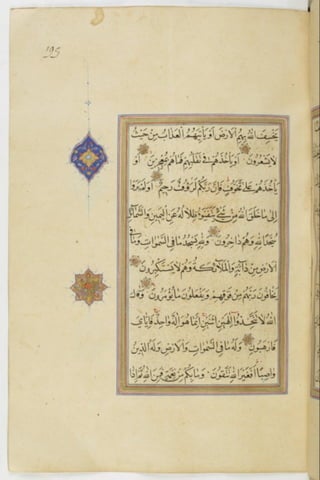 195
يَخْسِفَ اللهُ بِهِمُ الْاَرْضَ اَوْ يَاْتِيَهُمُ الْعَذَابُ مِنْ حَيْثُ
لَا يَشْعُرُونَ اَوْ يَاْخُذَهُمْ فِي تَقَلُّبِهِمْ فَمَا هُمْ بِمُعْجِزِينَ اَوْ
يَاْخُذَهُمْ عَلٰى تَخَوُّفٍ فَاِنَّ رَبَّكُمْ لَرَؤُفٌ رَحِيمٌ اَوَلَمْ يَرَوْا
اِلٰى مَا خَلَقَ اللهُ مِنْ شَيْءٍ يَتَفَيَّؤُا ظِلَالُهُ عَنِ الْيَمِينِ وَالشَّمَائِلِ
سُجَّدًا لِلّٰهِ وَهُمْ دَاخِرُونَ وَلِلّٰهِ يَسْجُدُ مَا فِي السَّمٰوَاتِ وَمَا فِي
الْاَرْضِ مِنْ دَابَّةٍ وَالْمَلَائِكَةُ وَهُمْ لَا يَسْتَكْبِرُونَ
يَخَافُونَ رَبَّهُمْ مِنْ فَوْقِهِمْ وَيَفْعَلُونَ مَا يُؤْمَرُونَ وَقَالَ
اللهُ لَا تَتَّخِذُوا اِلٰهَيْنِ اثْنَيْنِ اِنَّمَا هُوَ اِلٰهٌ وَاحِدٌ فَاِيَّايَ
فَارْهَبُونِ وَلَهُ مَا فِي السَّمٰوَاتِ وَالْاَرْضِ وَلَهُ الدِّينُ
وَاصِبًا اَفَغَيْرَ اللهِ تَتَّقُونَ وَمَا بِكُمْ مِنْ نِعْمَةٍ فَمِنَ اللهِ ثُمَّ اِذَا